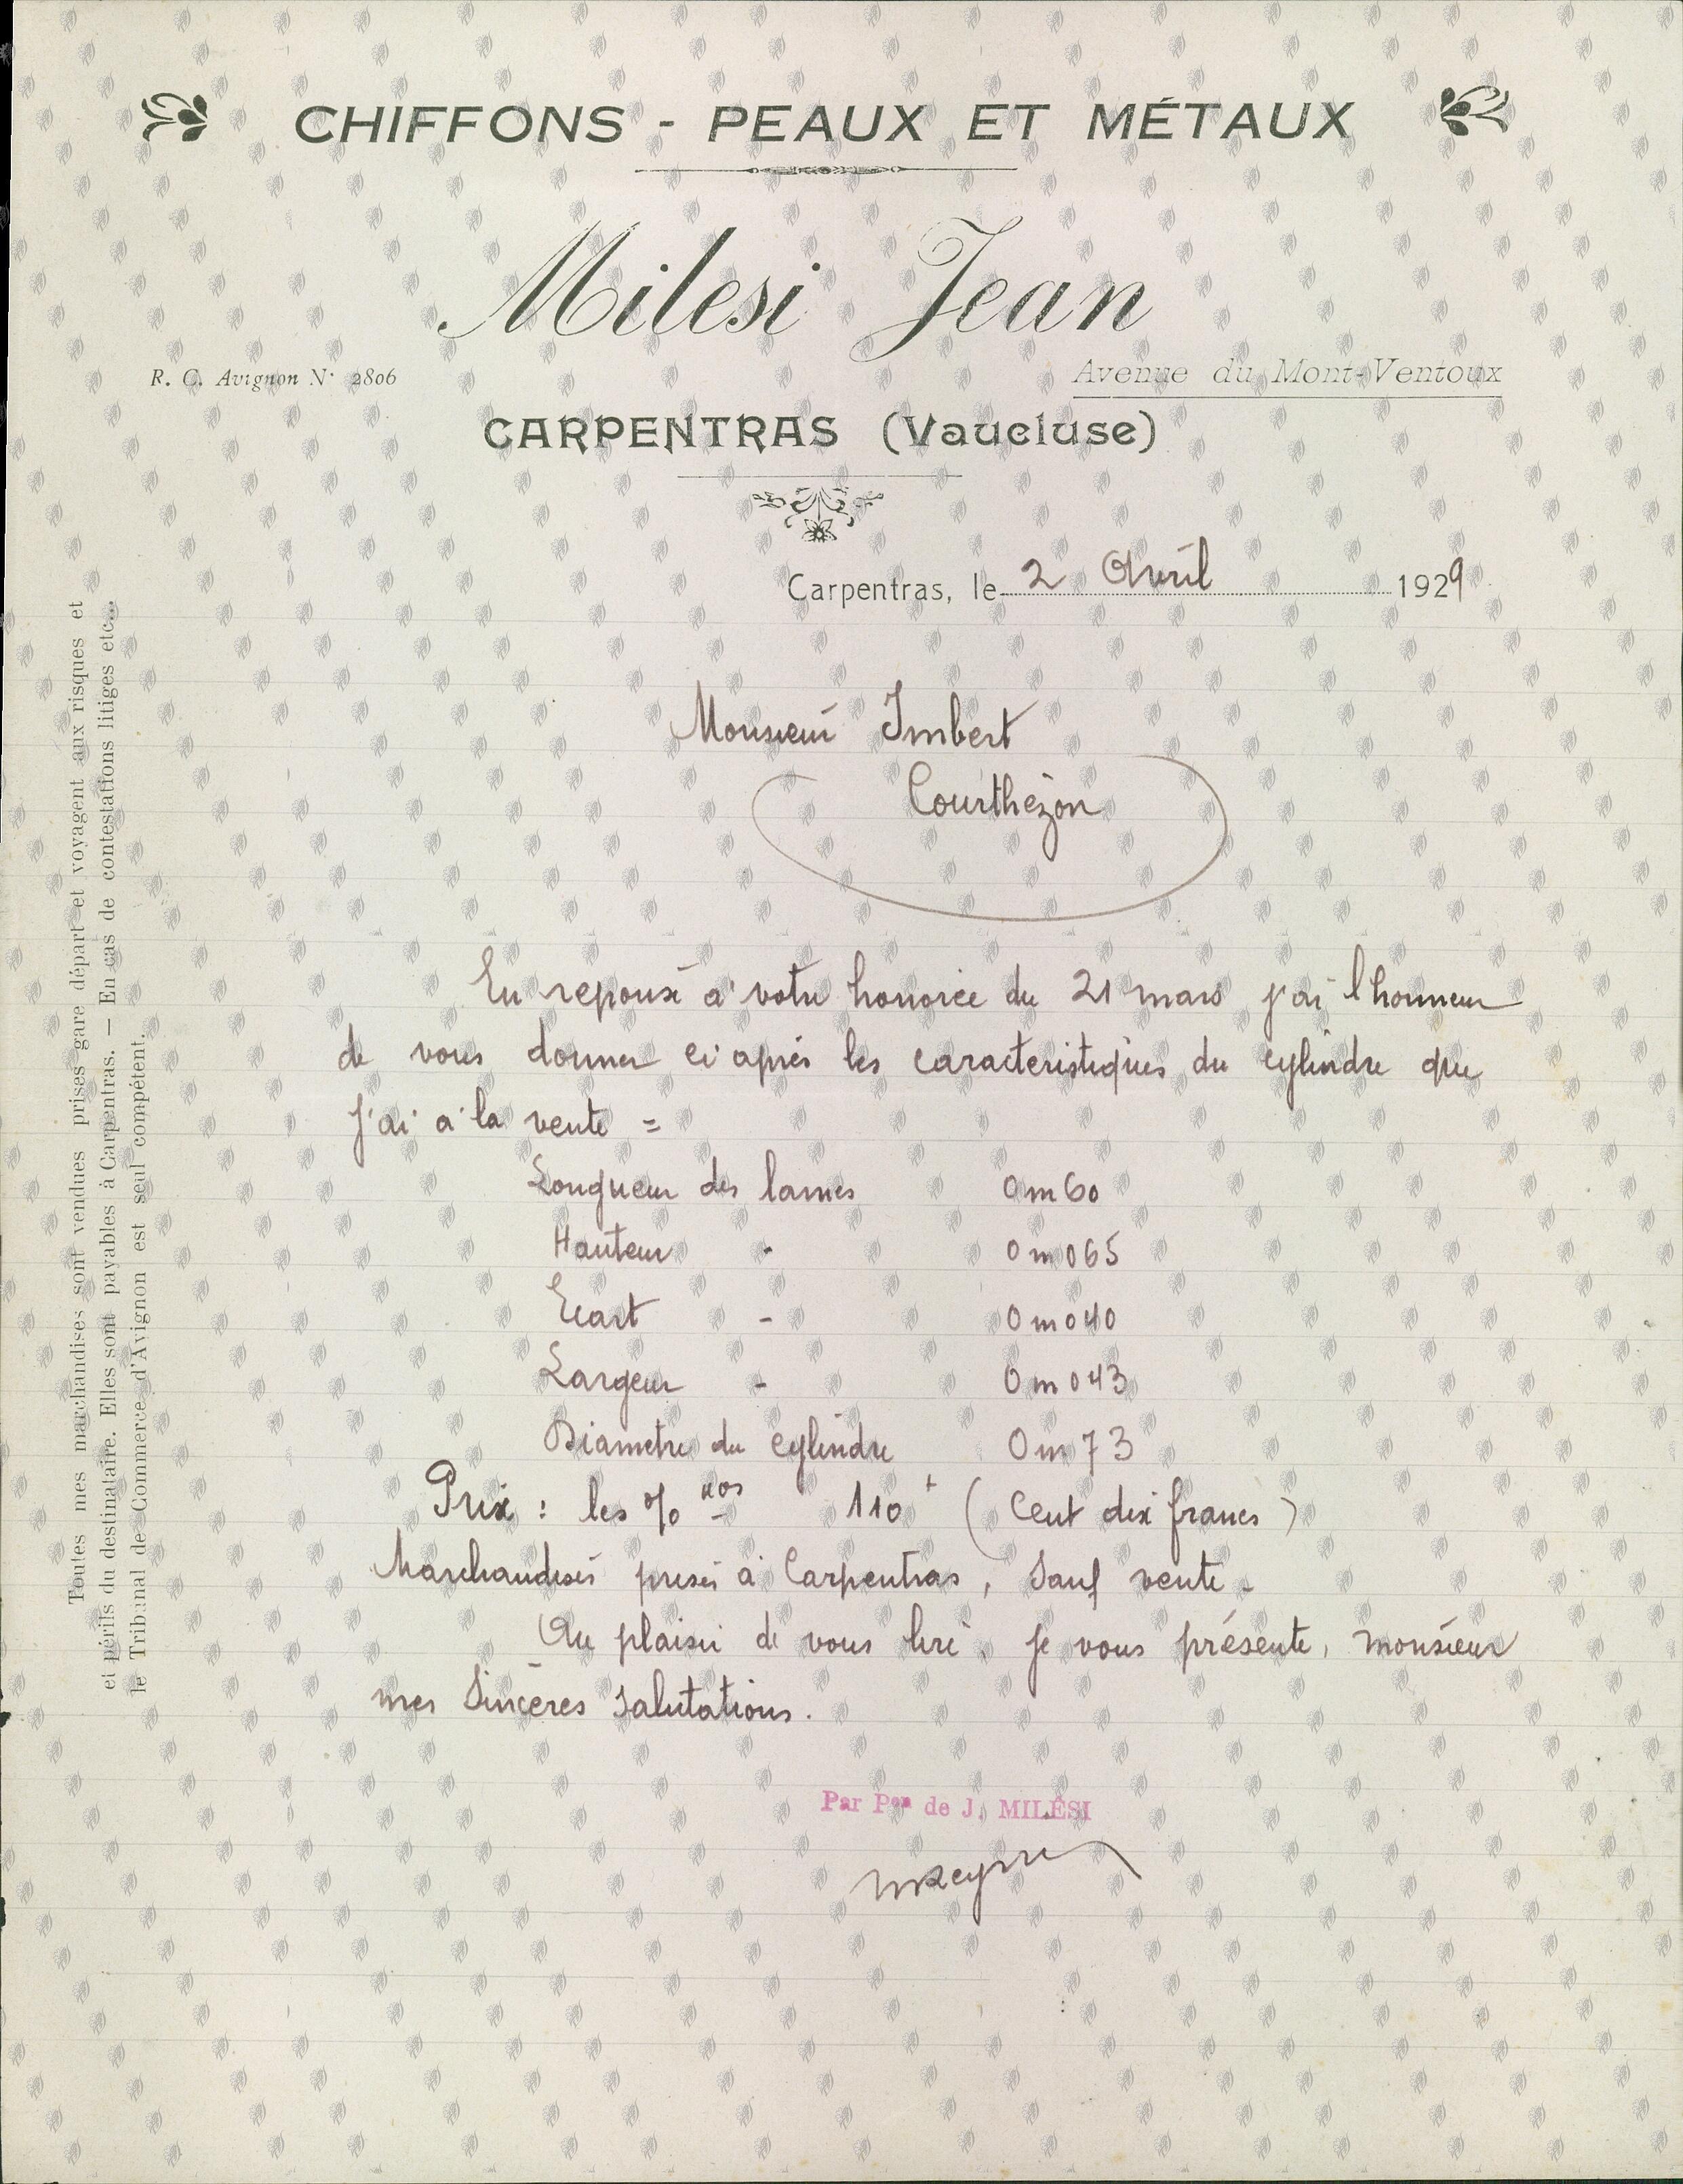 CHIFFONS - PEAUX ET MÉTAUX
Milesi Jean
R. C. Avignon N° 2806
Avenue du Mont-Ventoux
CARPENTRAS (Vaucluse)
Carpentras, le 2 Avril 1929
Monsieur Imbert
Courthézon
En réponse à votre honorée du 21 mars j'ai l'honneur
de vous donner ci après les caractéristiques du cylindre que
j'ai à la vente =
Longueur des lames 0m60
Hauteur - 0m065
Ecart - 0m040
Largeur - 0m043
Diametre du cylindre 0m73
Prix : les % kos 110 f (Cent dix francs)
Marchandises prises à Carpentras, Sauf vente -
Au plaisir de vous lire, je vous présente, monsieur
mes Sincères Salutations.
Par Pon de J. MILÉSI
Toutes mes marchandises sont vendues prises gare départ et voyagent aux risques et
et périls du destinataire. Elles sont payables à Carpentras. — En cas de contestations litiges etc...
le Tribunal de Commerce d'Avignon est seul compétent.